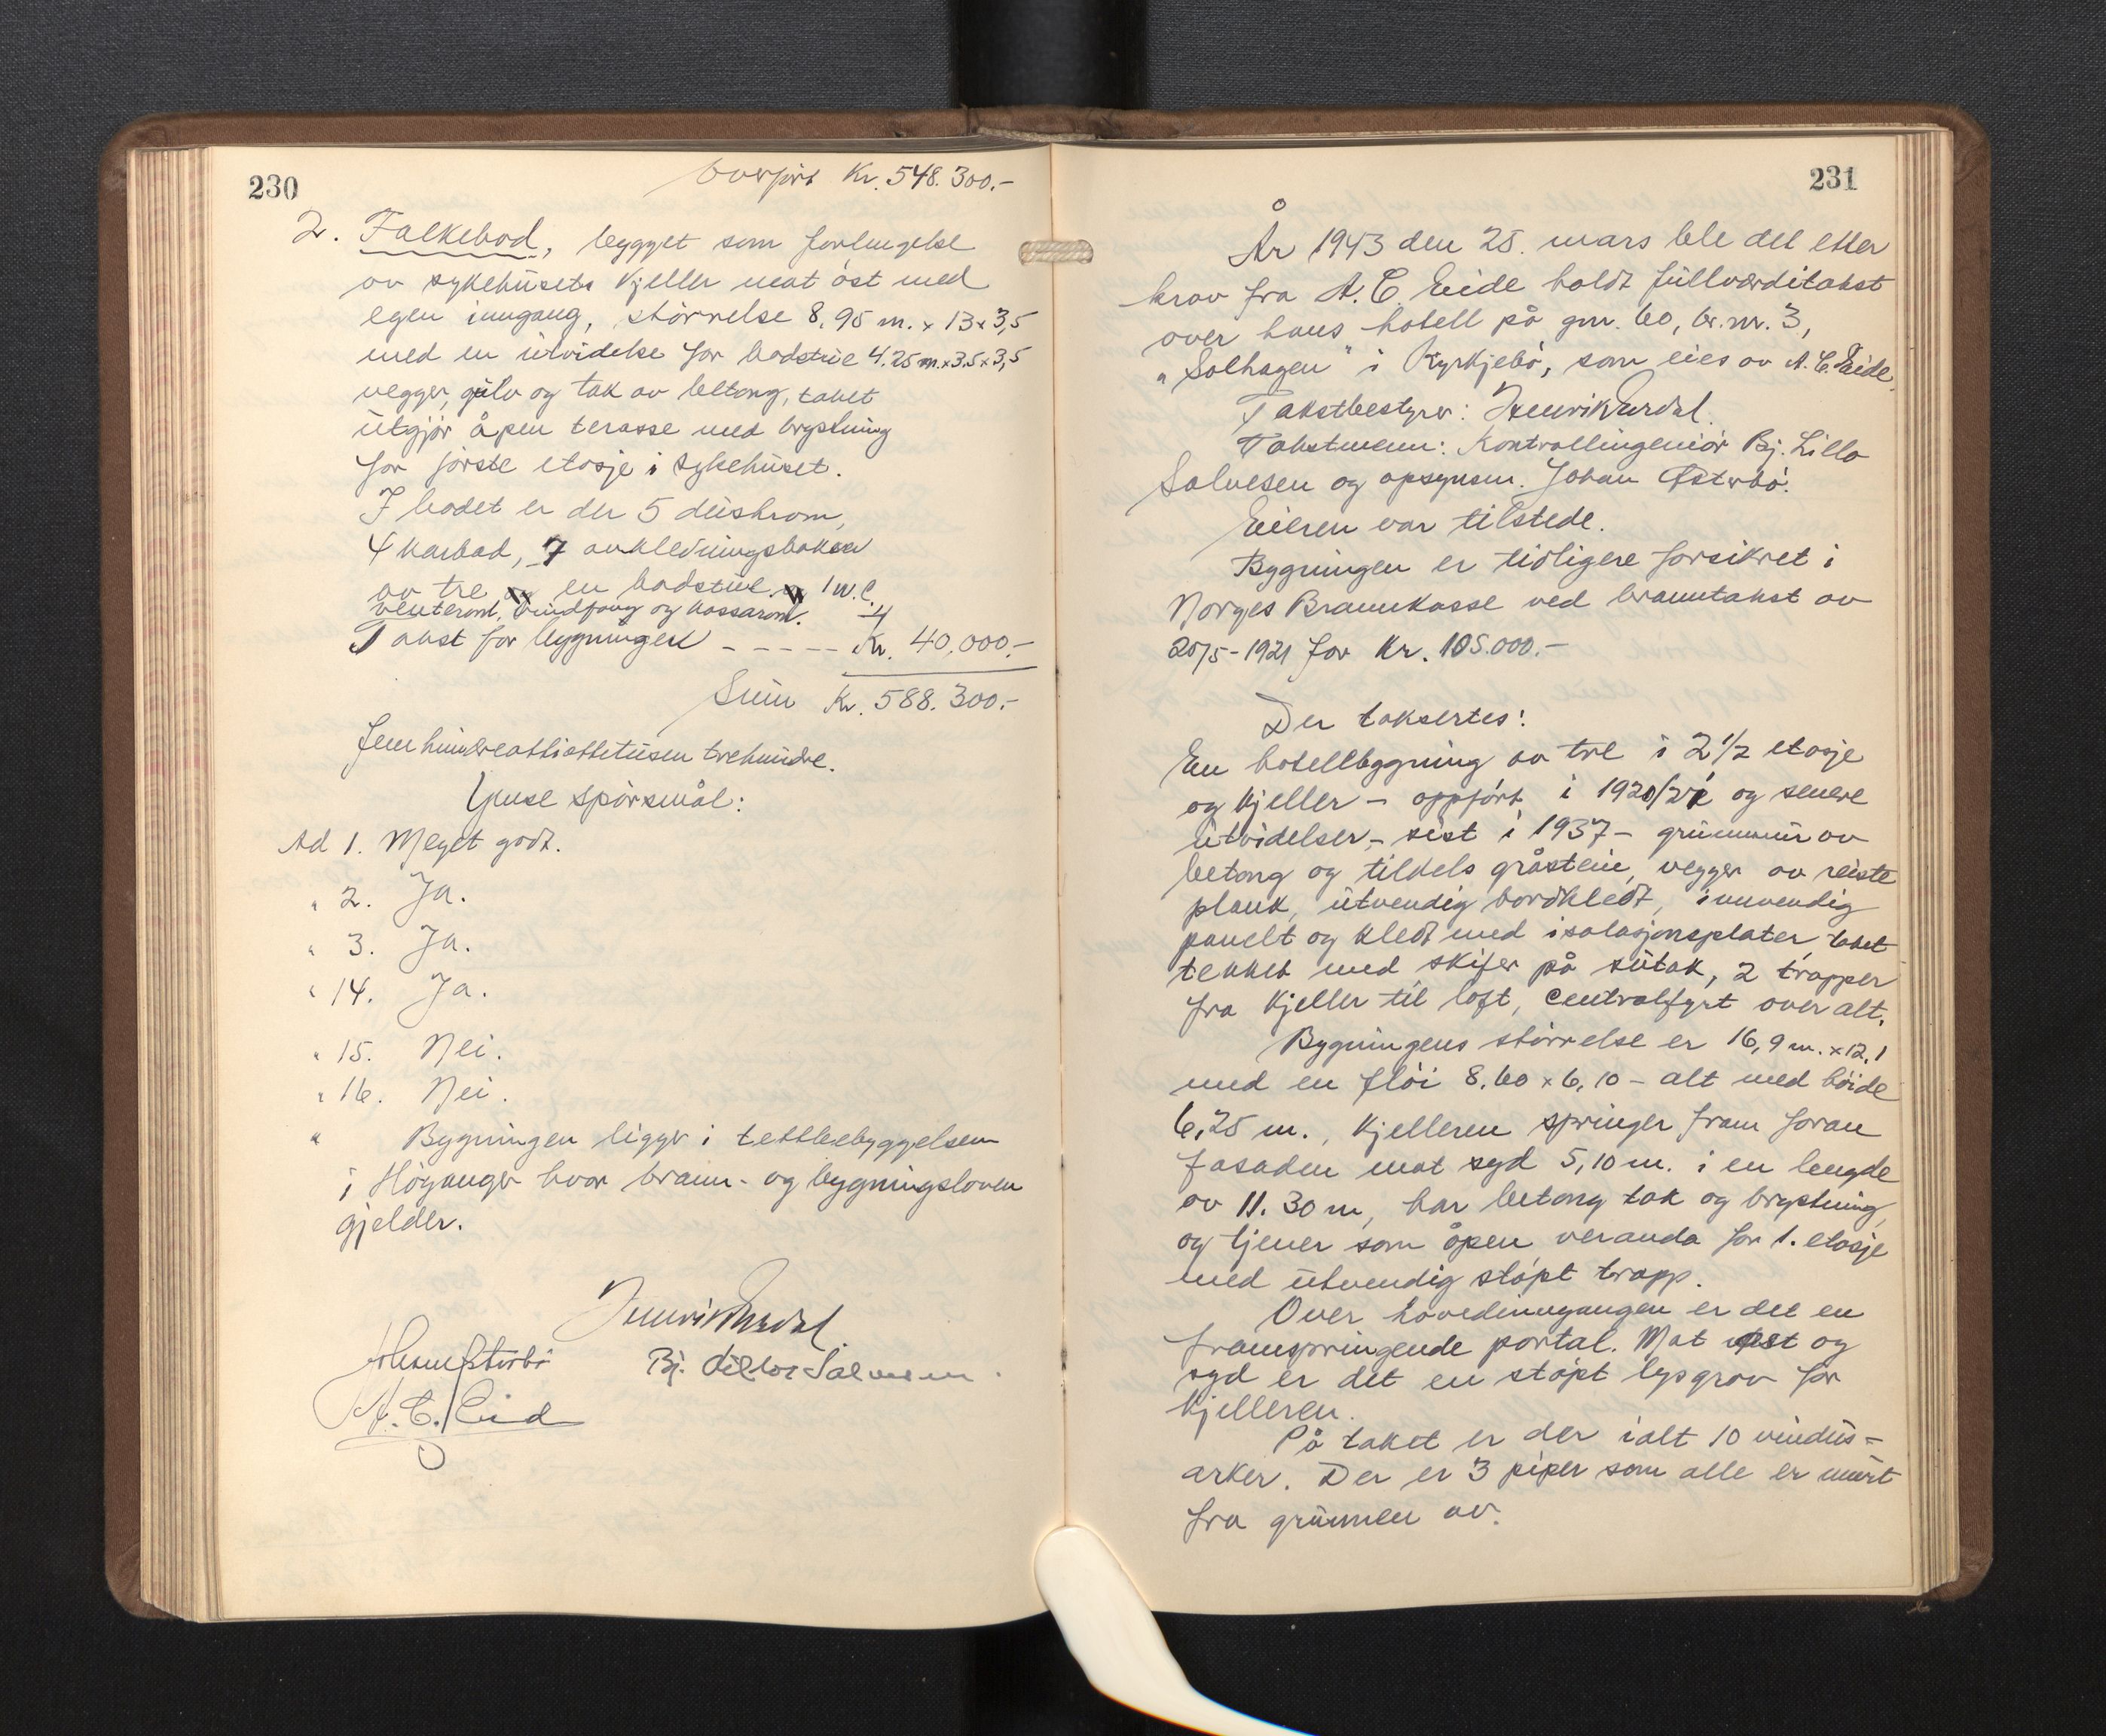 230
Overført Kr. 548.300.-
2. Folkebad, bygget som forlengelse
av sykehusets kjeller mot øst med
egen inngang, størrelse 8,95 m. x 13 x 3,5
med en utvidelse for badstue 4.25 m. x 3.5 x 3,5
vegger, gulv og tak av betong, taket
utgjør åpen terasse med brystning
for første etasje i sykehuset.
I badet er der 5 dusjrom,
4 karbad, 7 avkledningsbokser
av tre en badstue. 1 w.c.
venterom, vindfang og kasserom.
Takst for bygningen - - - - - Kr. 40.000.-
Sum Kr. 588.300.-
femhundreåttiåttetusen trehundre.
Ymse spørsmål:
Ad 1. Meget godt.
" 2. Ja.
" 3. Ja.
" 14. Ja.
" 15. Nei.
" 16. Nei.
" Bygningen ligger i tettbebyggelsen
i Høyanger hvor brann- og bygningsloven
gjelder.
Henrik Erdal.
Johan Østerbø Bj. Lillo Salvesen.
A. C. Eide
231
År 1943 den 25. mars ble det etter
krav fra A. C. Eide holdt fullverditakst
over hans hotell på gnr. 60, br.nr. 3,
"Solhagen" i Kyrkjebø, som eies av A. C. Eide.
Takstbestyrer: Henrik Erdal.
Takstmenn: Kontrollingeniør Bj. Lillo
Salvesen og opsynsm. Johan Østerbø.
Eieren var tilstede.
Bygningen er tidligere forsikret i
Norges Brannkasse ved branntakst av
20/5-1921 for Kr. 105.000.-
Der taksertes:
En hotellbygning av tre i 2 1/2 etasje
og kjeller - oppført i 1920/21 og senere
utvidelser, - sist i 1937 - grunnmur av
betong og tildels gråstein, vegger av reiste
plank, utvendig bordkledt, innvendig
panelt og kledt med isolasjonsplater, taket
tekket med skifer på sutak, 2 trapper
fra kjeller til loft, centralfyrt over alt.
Bygningens størrelse er 16,9 m. x 12,1
med en fløi 8,60 x 6,10 - alt med høide
6,25 m., kjelleren springer fram foran
fasaden mot syd 5,10 m. i en lengde
av 11.30 m, har betong tak og brystning,
og tjener som åpen veranda for 1. etasje
med utvendig støpt trapp.
Over hovedinngangen er det en
framspringende portal. Mot øst og
syd er det en støpt lysgrav for
kjelleren.
På taket er der ialt 10 vindus-
arker. Der er 3 piper som alle er murt
fra grunnen av.